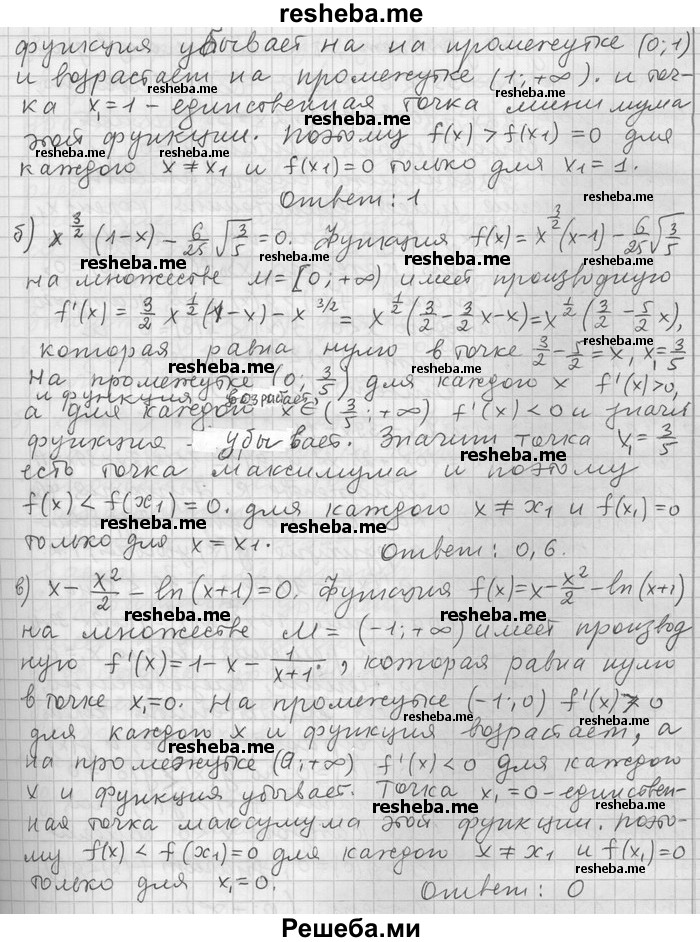 resheba.me
функция убывает на на промежутке (0;1)
и возрастает на промежутке (1;+∞). и точ-
ка x₁=1 – единственная точка минимума
этой функции. Поэтому f(x)>f(x₁)=0 для
каждого x≠x₁ и f(x₁)=0 только для x₁=1.
Ответ: 1
б) x^(3/2) (1-x) - 6/25 √(3/5) = 0. Функция f(x)=x^(3/2)(x-1) - 6/25 √(3/5)
на множестве M=[0;+∞) имеет производную
f'(x) = 3/2 x^(1/2)(1-x) - x^(3/2) = x^(1/2)(3/2 - 3/2 x - x) = x^(1/2)(3/2 - 5/2 x),
которая равна нулю в точке 3/2 - 5/2 = x, x₁ = 3/5
На промежутке (0; 3/5) для каждого x f'(x)>0,
и функция возрастает,
а для каждого x∈(3/5; +∞) f'(x)<0 и значи
функция - убывает. Значит точка x₁ = 3/5
есть точка максимума и поэтому
f(x) < f(x₁) = 0. для каждого x ≠ x₁ и f(x₁) = 0
только для x = x₁.
Ответ: 0,6.
в) x - x²/2 - ln(x+1)=0. Функция f(x)=x - x²/2 - ln(x+1)
на множестве M = (-1;+∞) имеет производ
ную f'(x)=1-x - 1/(x+1), которая равна нулю
в точке x₁=0. На промежутке (-1;0) f'(x)>0
для каждого x и функция возрастает, а
на промежутке (0;+∞) f'(x)<0 для каждого
x и функция убывает. Точка x₁=0 – единствен-
ная точка максумума этой функции. Поэто-
му f(x) < f(x₁)=0 для каждого x ≠ x₁ и f(x₁)=0
только для x₁=0.
Ответ: 0
Решеба.ми